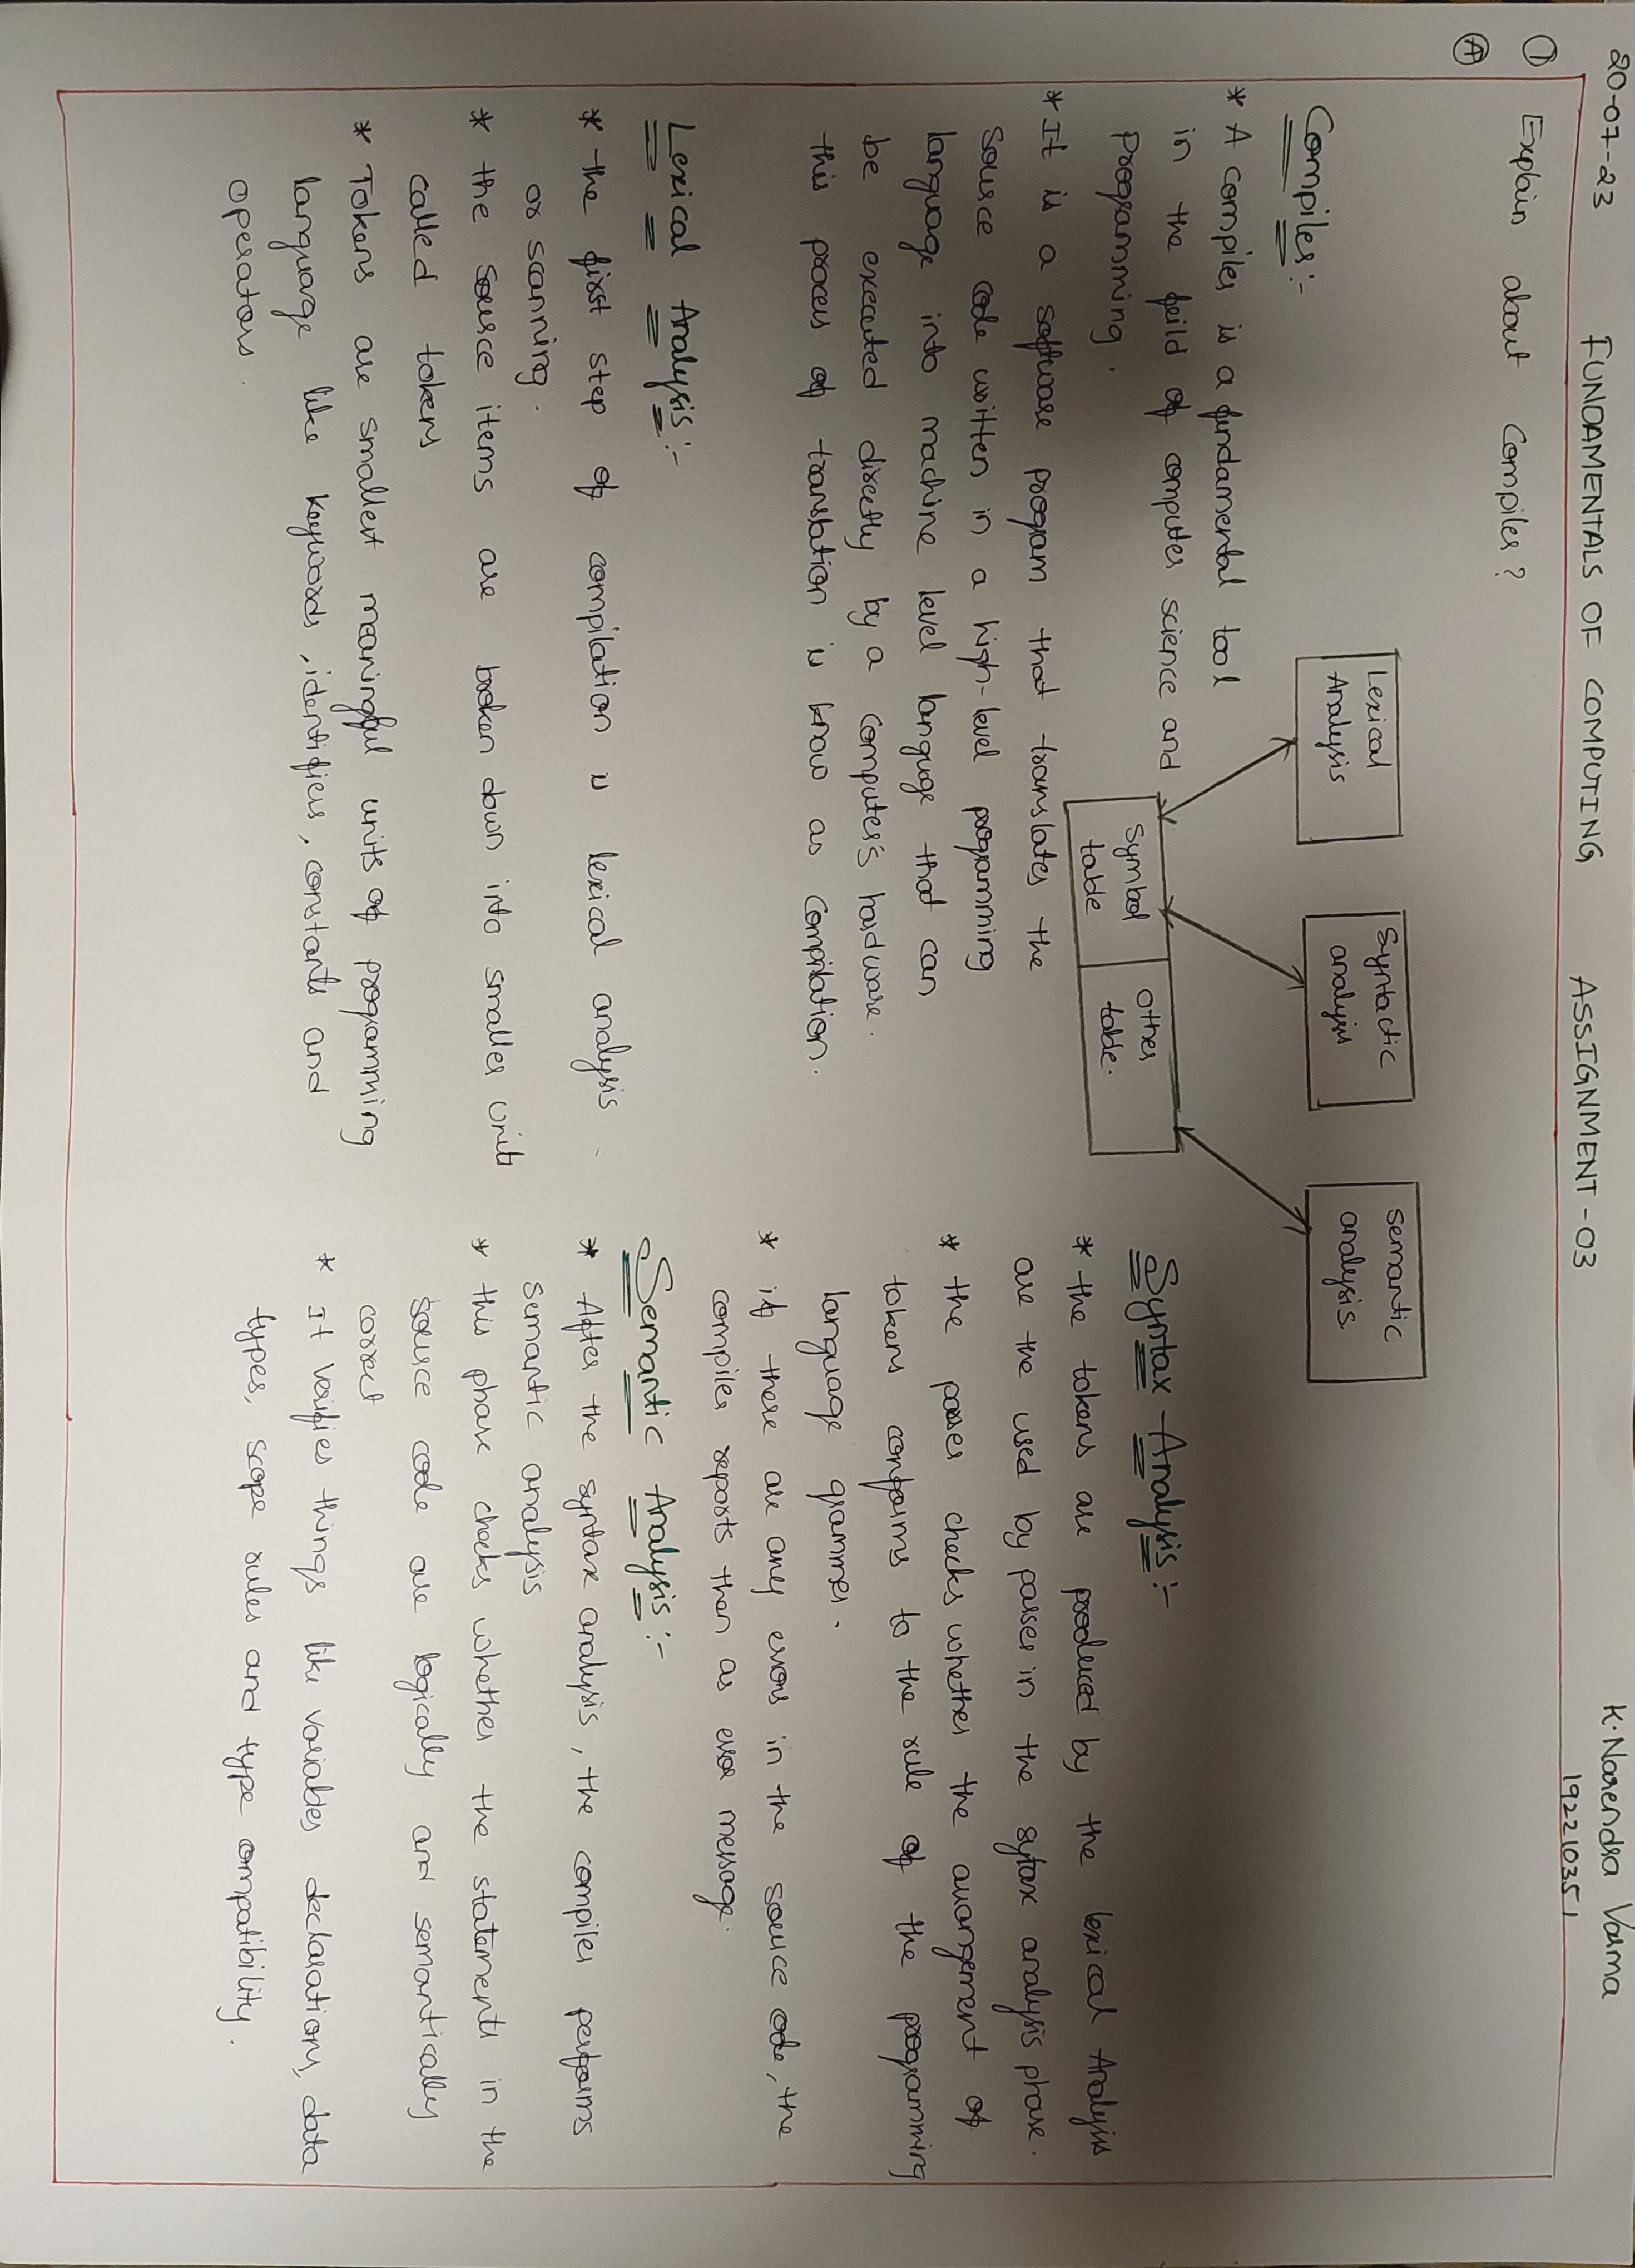 20-07-23
FUNDAMENTALS OF COMPUTING
ASSIGNMENT - 03
K. Narendra Varma
192210351
① Explain about Compiler?
Ⓐ
Lexical
Analysis
Syntactic
analysis
Semantic
analysis
Symbol
table
other
table.
Compiler:-
* A compiler is a fundamental tool
in the feild of computer science and
Programming.
* It is a software program that translates the
source code written in a high-level programming
language into machine level language that can
be executed directly by a computer's hardware.
this process of translation is know as compilation.
Lexical Analysis:-
* the first step of compilation is lexical analysis
or scanning.
* the source items are broken down into smaller units
called tokens
* Tokens are smallest meaningful units of programming
language like keywords, identifiers, constants and
operators.
Syntax Analysis:-
* the tokens are produced by the lexical Analysis
are the used by parser in the sytax analysis phase.
* the parser checks whether the arrangement of
tokens conforms to the rule of the programming
language grammer.
* if there are any errors in the source code, the
compiler reports then as error message.
Semantic Analysis:-
* After the syntax analysis, the compiler performs
semantic analysis
* this phase checks whether the statements in the
source code are logically and semantically
correct
* It verifies things like variables declarations, data
types, scope rules and type compatibility.